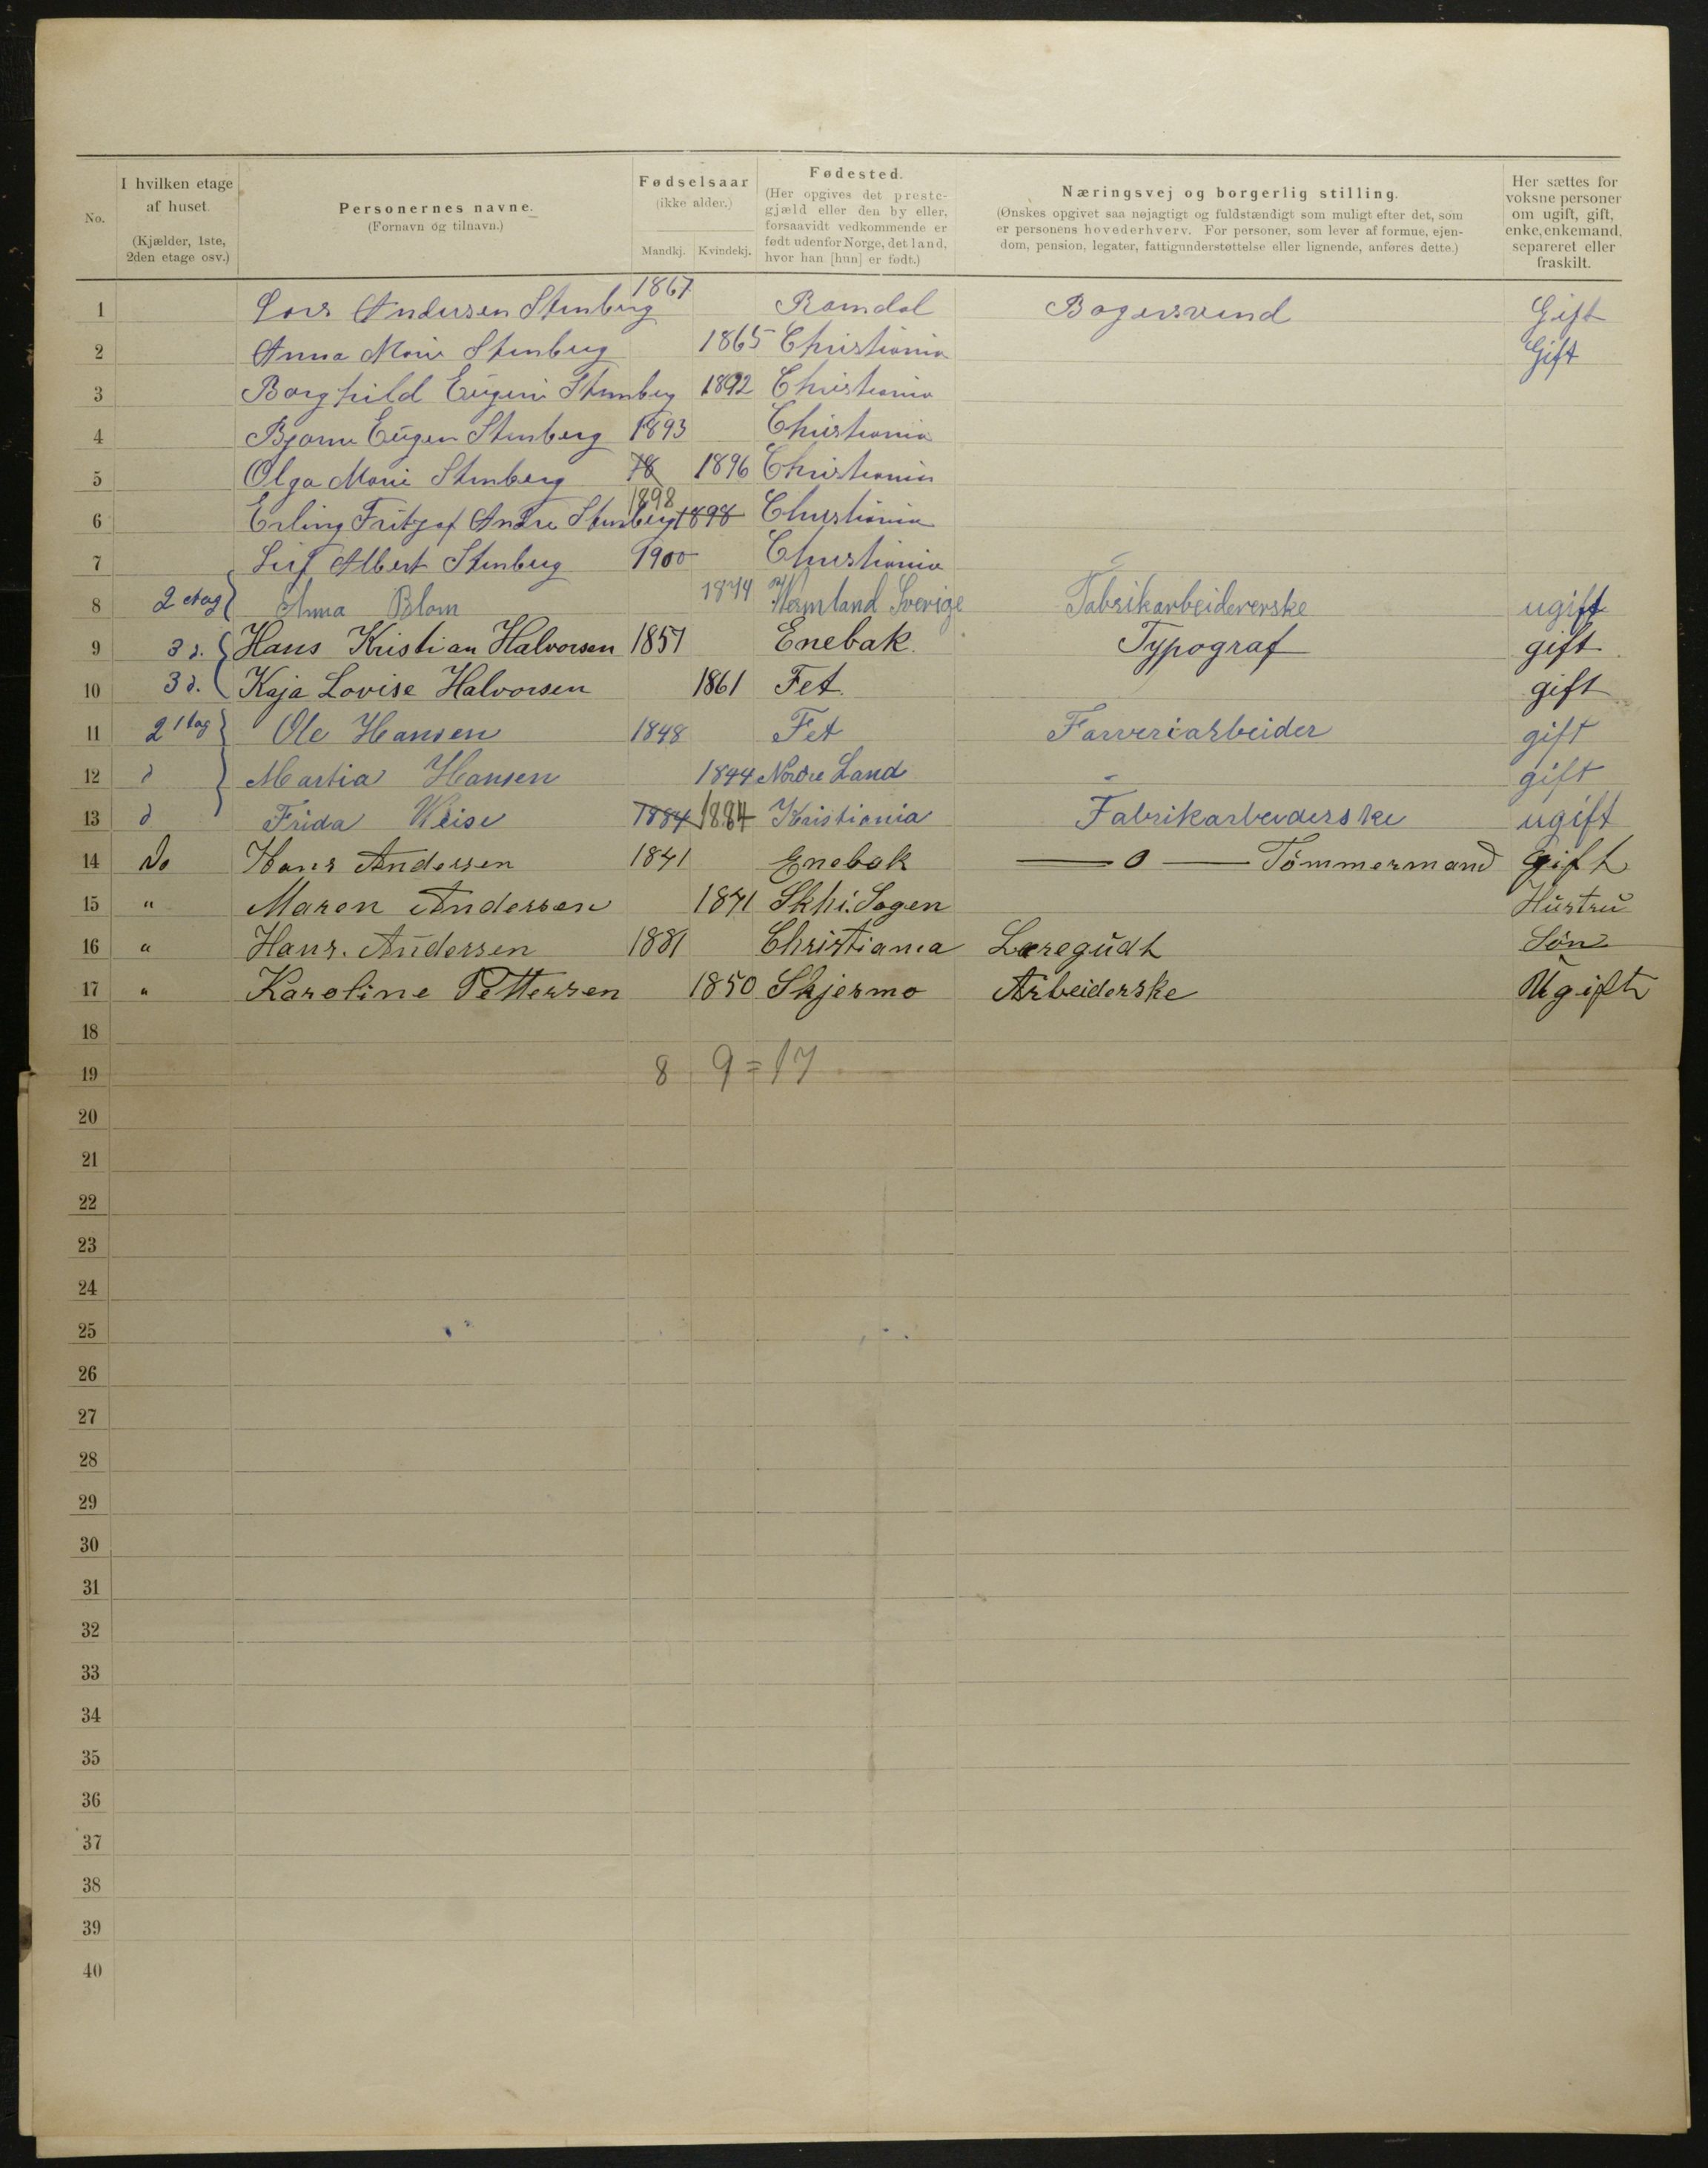 No.
I hvilken etage af huset. (Kjælder, 1ste, 2den etage osv.)
Personernes navne. (Fornavn og tilnavn.)
Fødselsaar (ikke alder.)
Mandkj. Kvindekj.
Fødested. (Her opgives det prestegjæld eller den by eller, forsaavidt vedkommende er født udenfor Norge, det land, hvor han [hun] er født.)
Næringsvej og borgerlig stilling. (Ønskes opgivet saa nøjagtigt og fuldstændigt som muligt efter det, som er personens hovederhverv. For personer, som lever af formue, ejendom, pension, legater, fattigunderstøttelse eller lignende, anføres dette.)
Her sættes for voksne personer om ugift, gift, enke, enkemand, separeret eller fraskilt.
1 Lars Andersen Stenberg 1867 Romdal Bagersvend Gift
2 Anna Marie Stenberg 1865 Christiania Gift
3 Borghild Eugeni Stenberg 1892 Christiania
4 Bjarne Eugen Stenberg 1893 Christiania
5 Olga Marie Stenberg 18 1896 Christiania
6 Erling Fritjof Andre Stenberg 1898 1898 Christiania
7 Leif Albert Stenberg 1900 Christiania
8 2 etag Anna Blom 1844 Vermland Sverige Fabrikarbeidererske ugift
9 3 d. Hans Kristian Halvorsen 1857 Enebak Typograf gift
10 3 d. Kaja Lovise Halvorsen 1861 Fet. gift
11 2 etag Ole Hansen 1848 Fet Farveriarbeider gift
12 d Martia Hansen 1844 Nordre Land - gift
13 d Frida Weise 1884 1884 Kristiania Fabrikarbeiderske ugift
14 Do Hans Andersen 1841 Enebak — 0 — Tömmermand Gift
15 " Maren Andersen 1841 Skhi. Sogen Hustru
16 " Hans. Andersen 1881 Christiania Læregudt Sön
17 " Karoline Pettersen 1850 Skjermo Arbeiderske Ugift
18
19 8 9 = 17
20
21
22
23
24
25
26
27
28
29
30
31
32
33
34
35
36
37
38
39
40